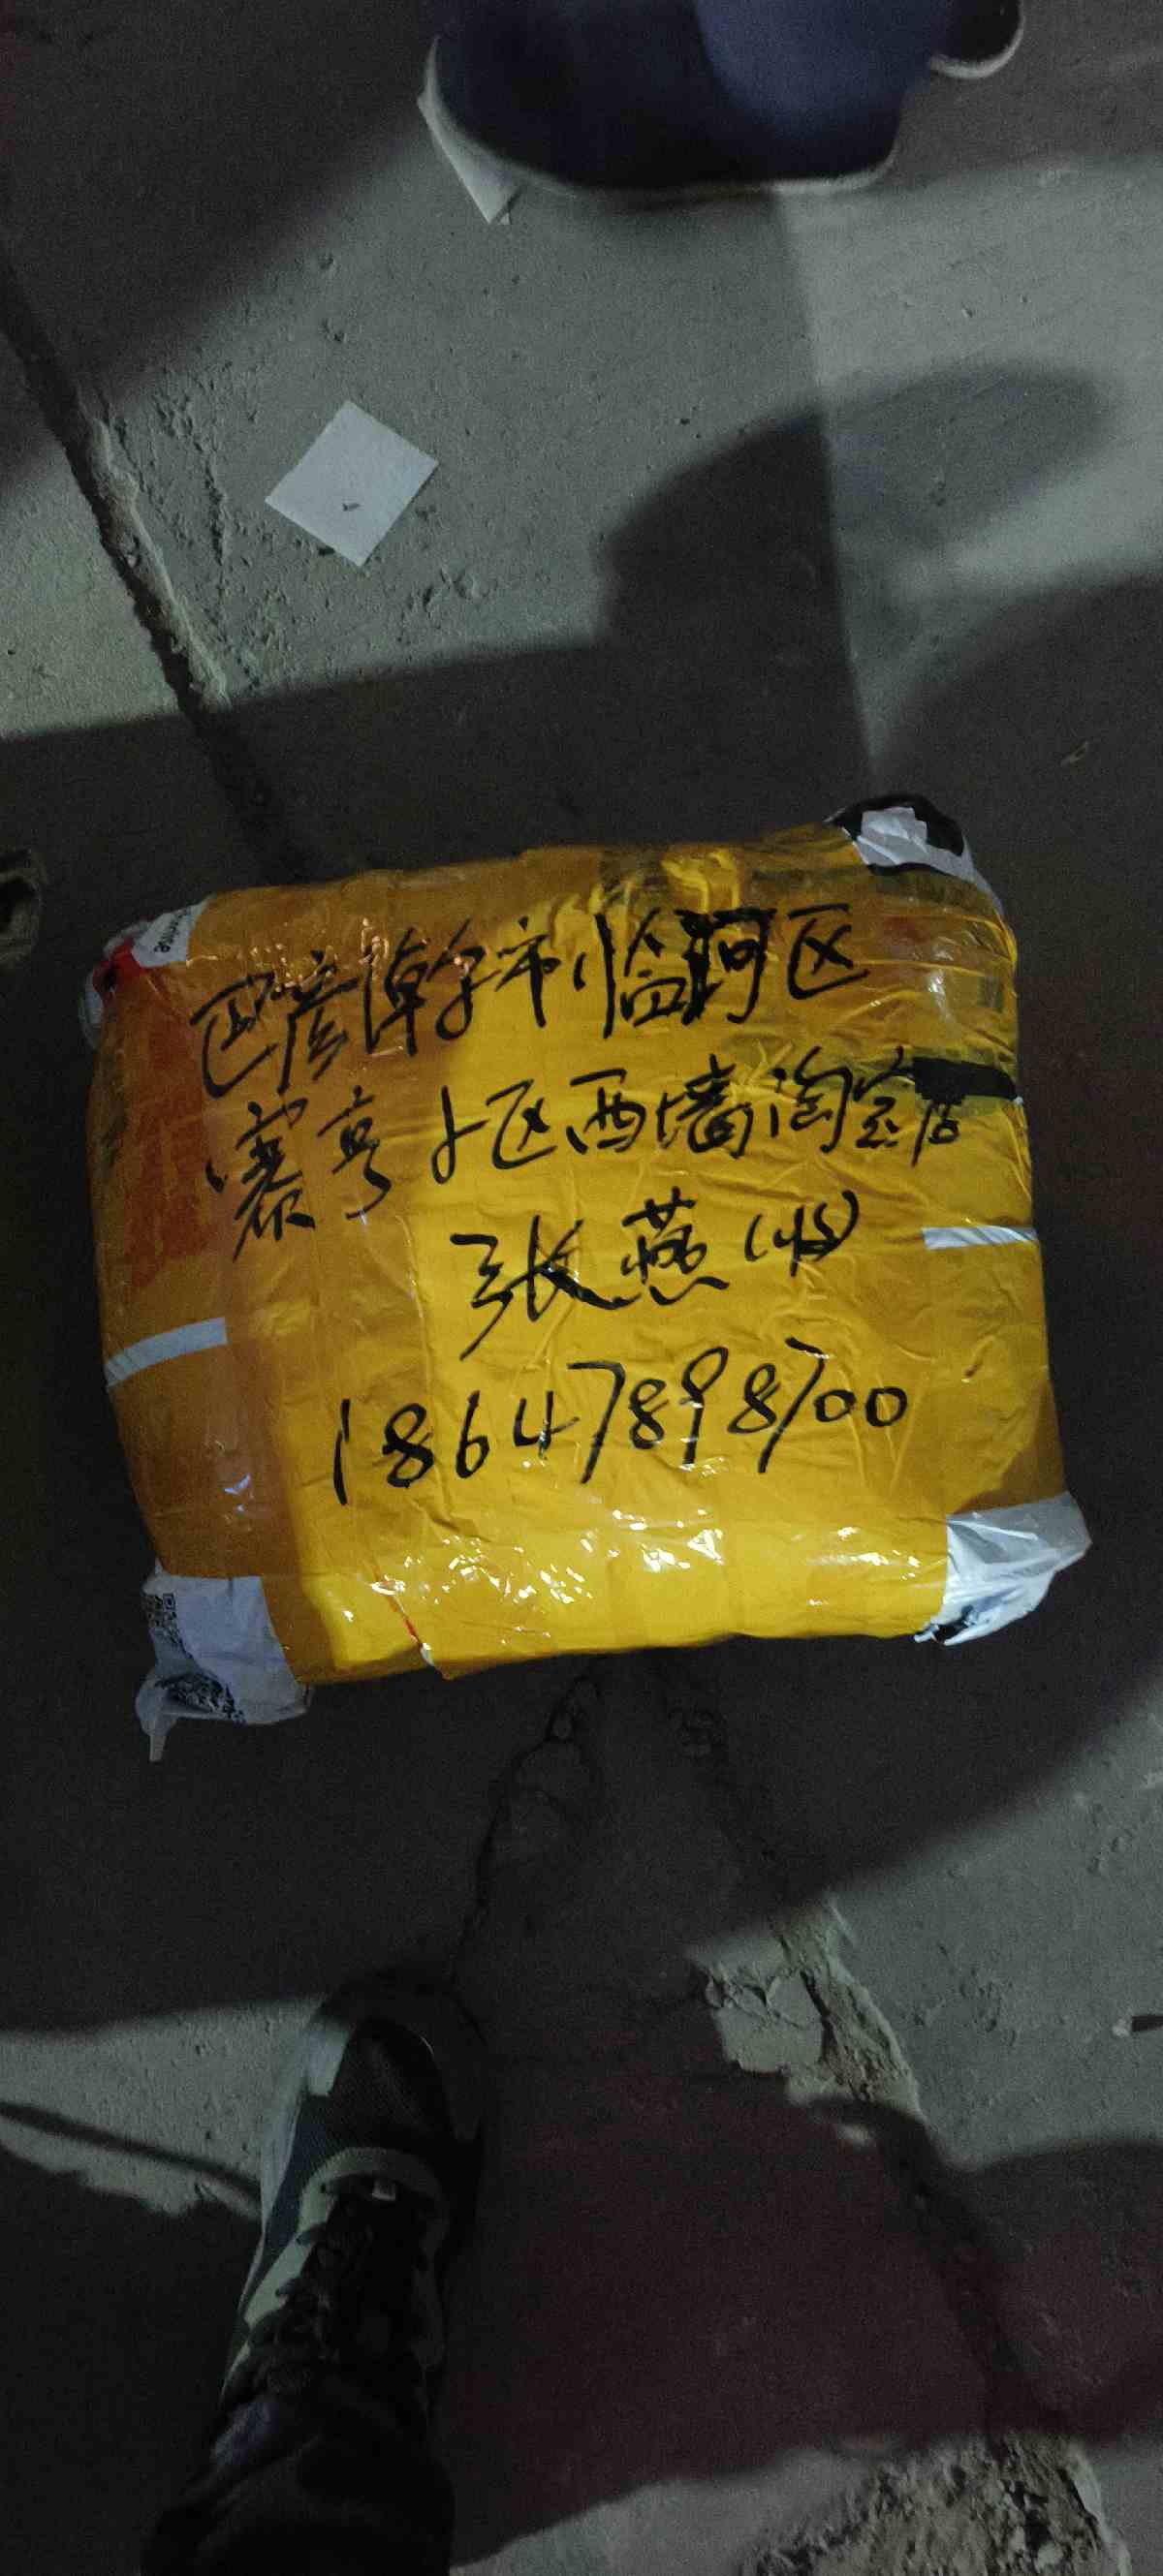 巴彦淖尔市临河区
赛亨小区西墙淘宝店
张燕(收)
18647898700